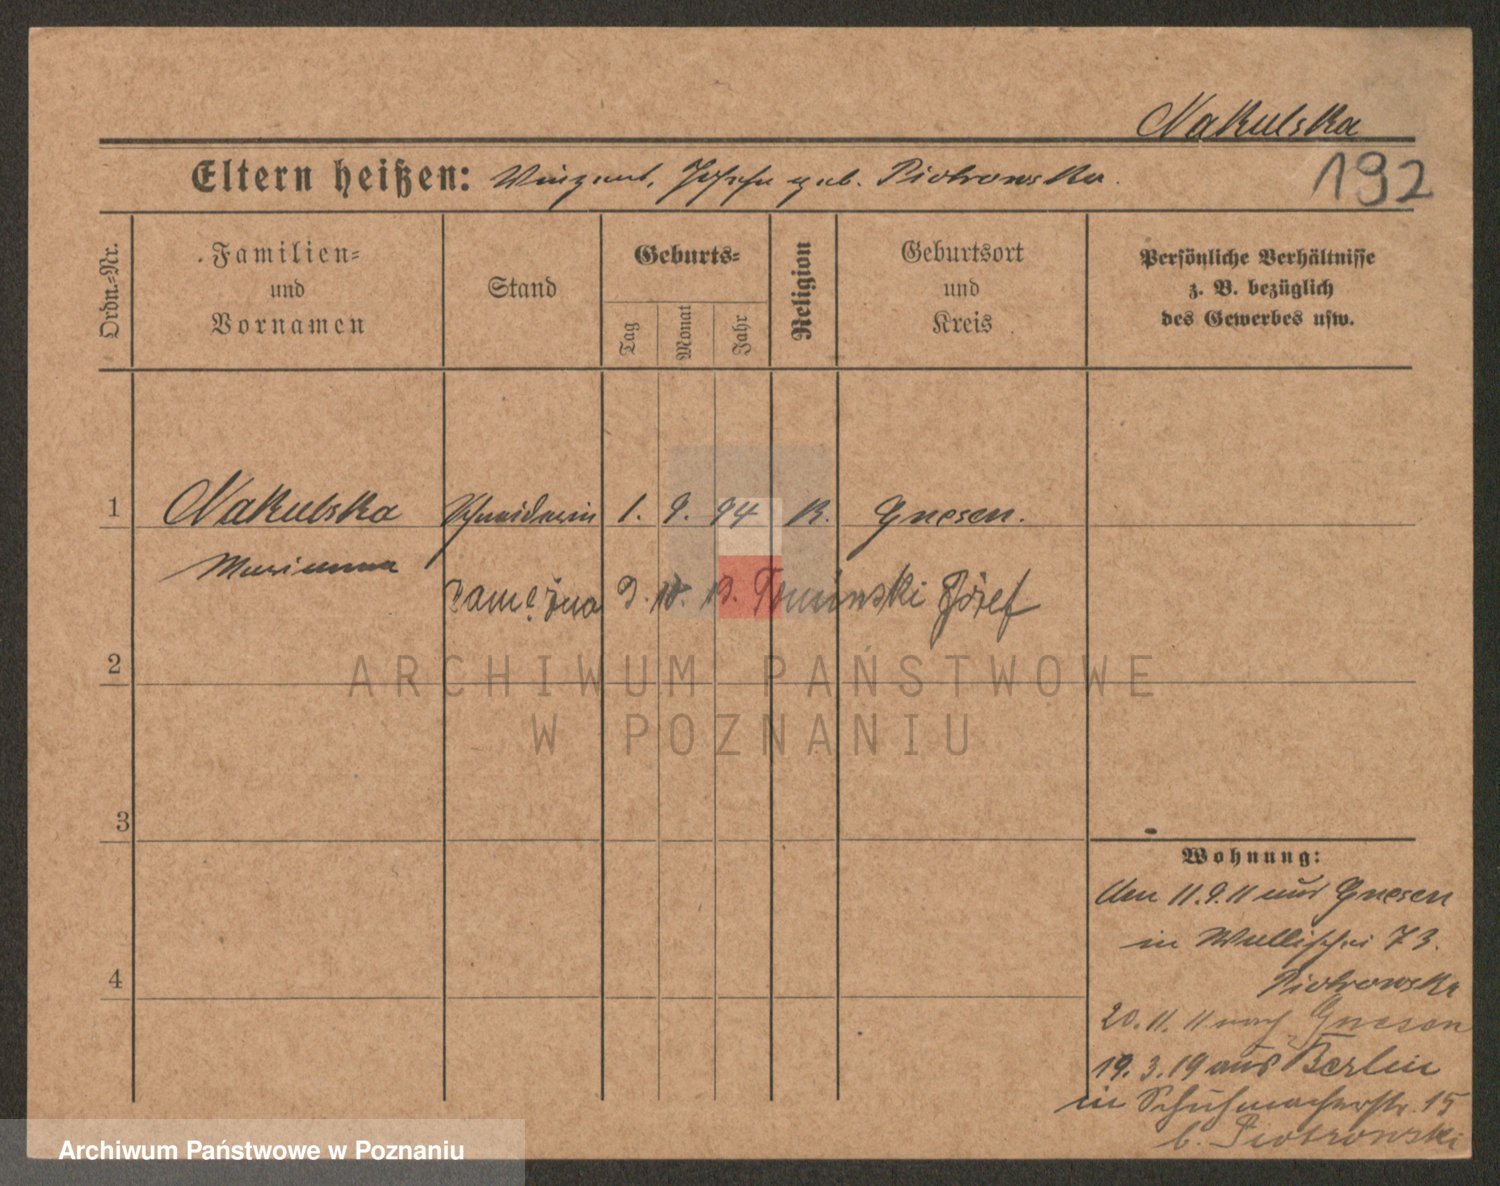 Nakulska
Eltern heißen: Vinzent, geb. Piotrowska.
192
Ordn.-Nr.
Familien-
und
Vornamen
Stand
Geburts-
Tag
Monat
Jahr
Religion
Geburtsort
und
Kreis
Persönliche Verhältnisse
z. B. bezüglich
des Gewerbes usw.
1
Nakulska Schneiderin 1. 9. 94 K. Gnesen.
Marianna
Zamężna Józef
2
ARCHIWUM PAŃSTWOWE
W POZNANIU
3
Wohnung:
Am 11.9.11 aus Gnesen
in Wallischei 73.
Piotrowska
4
20.11.11 nach Gnesen
19.3.19 aus Berlin
in Schuhmacherstr. 15
b. Piotrowski
Archiwum Państwowe w Poznaniu